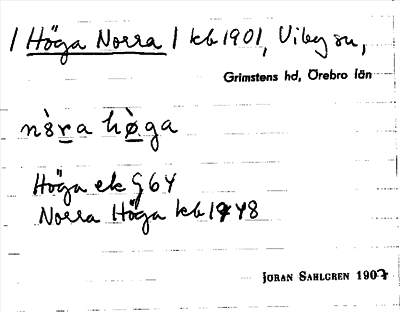 / Höga Norra / kb 1901, Viby sn,
Grimstens hd, Örebro län
Höga ek G 64
Norra Höga kb 1948
JÖRAN SAHLGREN 1907